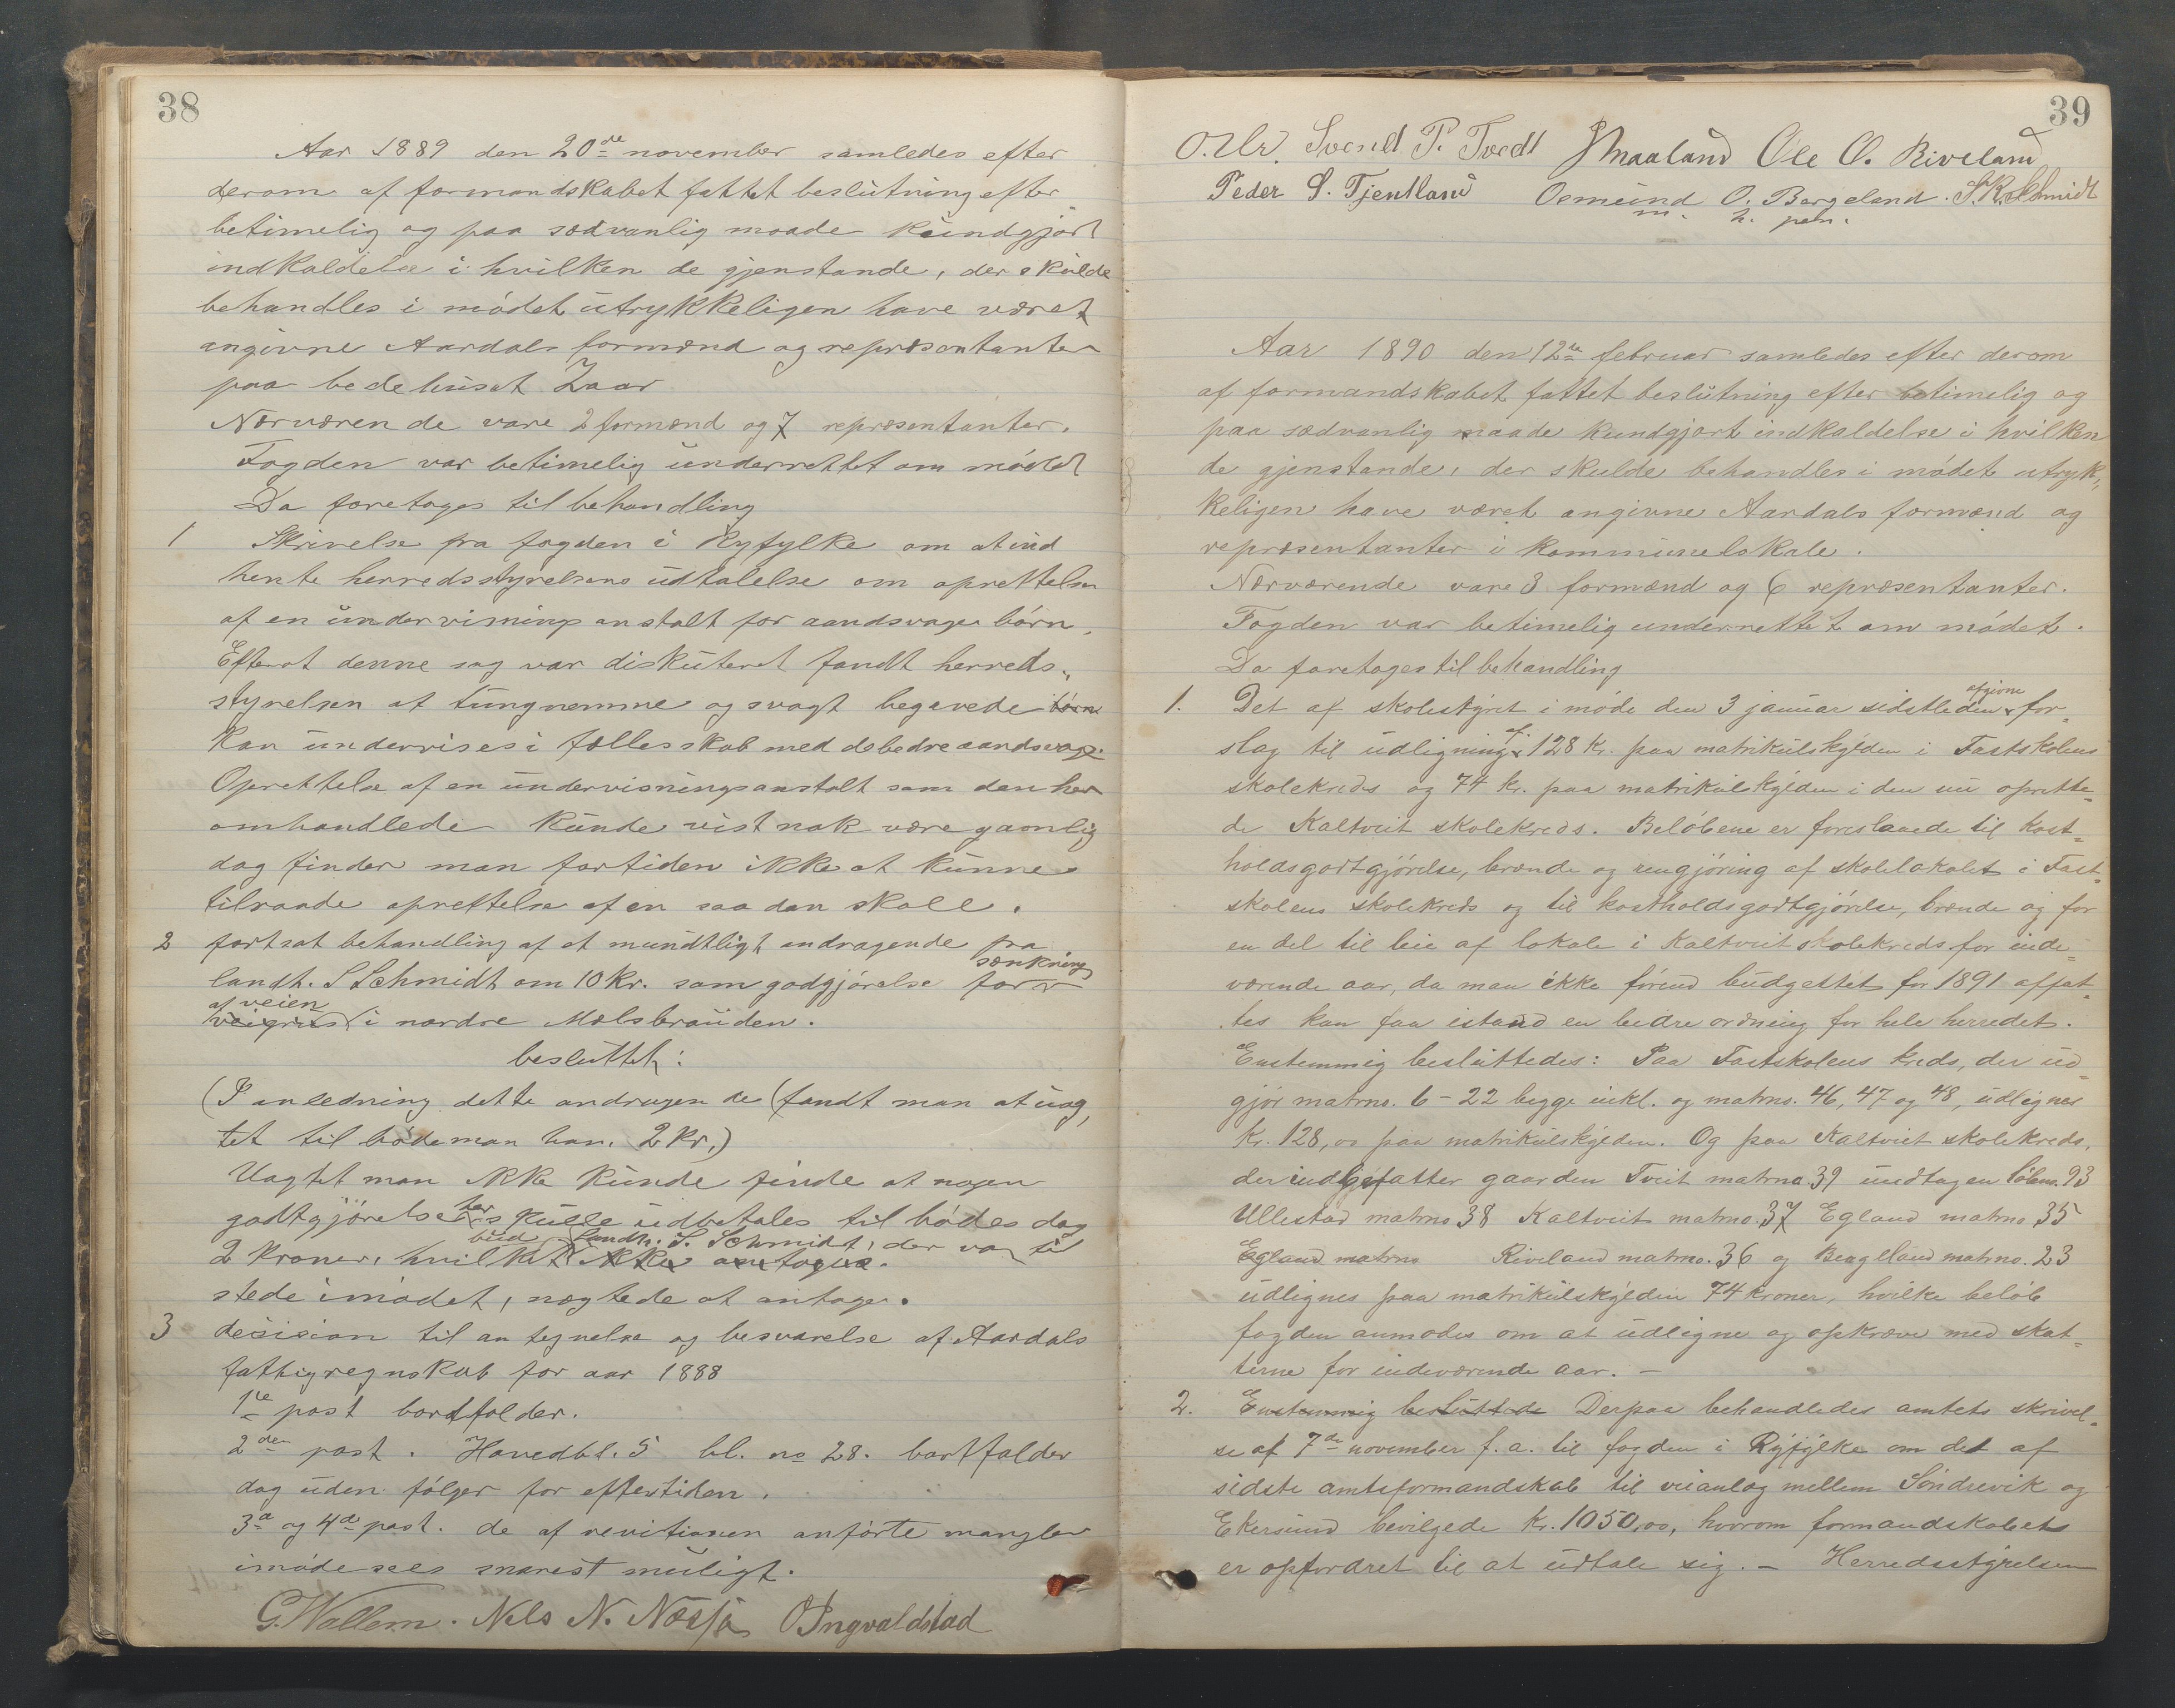 38
Aar 1889 den 20de november samledes efter
derom af formandskabet fattet beslutning efter
betimelig og paa sædvanlig maade kundgjort
indkaldelse i hvilken de gjenstande, der skulde
behandles i mødet utrykkeligen have været
angivne Aardals formænd og repræsentanter
paa bedehuset Zaar
Nærværende vare 2 formænd og 7 repræsentanter.
Fogden var betimelig underrettet om mødet
Da foretoges til behandling
1 Skrivelse fra fogden i Ryfylke om at ind
hente herredsstyrelsens udtalelse om oprettelse
af en undervisningsanstalt for aandsvage børn.
Efterat denne sag var diskuteret fandt herreds-
styrelsen at tungnemme og svagt begavede børn
kan undervises i fællesskab med de bedre aandsvage
Oprettelse af en undervisningsanstalt som den her
omhandlede kunde vistnok være gavnlig
dog finder man fortiden ikke at kunne
tilraade oprettelse af en saadan skole.
2 fortsat behandling af et mundtligt andragende fra
landh. S Schmidt om 10 kr. som godgjørelse for sænkning
af veien veigrus i nordre Mælsbrauden.
besluttet:
(I anledning dette andragende (fandt man at uag,
tet til bødeman han. 2 kr.)
Uagtet man ikke kunde finde at nogen
godtgjørelse her skulle udbetales til bødes dog
2 kroner, hvilket bud landh. S. Schmidt, der var til
ikke antoges.
stede i mødet, nægtede at antage.
3 desision til antegnelse og besvarelse af Aardals
fattigregnskab for aar 1888
1te post bortfalder.
2den post. Hovedbl. 5 bl. no 28. bortfalder
dog uden følger for eftertiden.
3die og 4de post. de af revitionen anførte mangler
imødesees snarest muligt.
G. Wallem. Nels N. Nesja O Ingvaldstad
39
O. Ur. Svend P. Tvedt J Maaland Ole O. Riveland
Peder S. Tjentland Osmund O. Bergeland. S. K. Schmidt
m. h. pen.
Aar 1890 den 12te februar samledes efter derom
af formandskabet fattet beslutning efter betimelig og
paa sædvanlig maade kundgjort indkaldelse i hvilken
de gjenstande, der skulde behandles i mødet utryk-
keligen have været angivne Aardals formænd og
repræsentanter i kommunelokale.
Nærværende vare 3 formænd og 6 repræsentanter.
Fogden var betimelig underrettet om mødet.
Da foretoges til behandling
1. Det af skolestyret i møde den 3 januar sidstleden afgivne for-
slag til udligning af 128 kr. paa matrikulskylden i Fastskolens
skolekreds og 74 kr. paa matrikulskylden i den nu oprette-
de Kaltveit skolekreds. Beløbene er foreslaaede til kost-
holdsgodtgjørelse, brænde og rengjøring af skolelokalet i Fast-
skolens skolekreds og til kostholdsgodtgjørelse, brænde og for
en del til leie af lokale i Kaltveit skolekreds for inde-
værende aar, da man ikke førend budgettet for 1891 affat-
tes kan faa istand en bedre ordning for hele herredet.
Enstemmig besluttedes: Paa Fastskolens kreds, der ud-
gjør matrno. 6 - 22 begge inkl. og matrno. 46, 47 og 48, udlignes
Kr. 128,00 paa matrikulskylden. Og paa Kaltveit skolekreds,
der indbefatter gaarden Tveit matrno. 39 undtagen løbenr. 93
Ullestad matrno 38 Kaltveit matrno. 37 Egland matrno 35
Egland matrno Riveland matrno. 36 og Bergeland matrno. 23
udlignes paa matrikulskylden 74 kroner, hvilke beløb
fogden anmodes om at udligne og opkræve med skat-
terne for indeværende aar. -
2. Enstemmig besluttede Derpaa behandledes amtets skrivel-
se af 7de november f. a. til fogden i Ryfylke om det af
sidste amtsformandskab til veianlæg mellem Søndrevik og
Ekersund bevilgede kr. 1050,00, hvorom formandskabet
er opfordret til at udtale sig. - Herredsstyrelsen